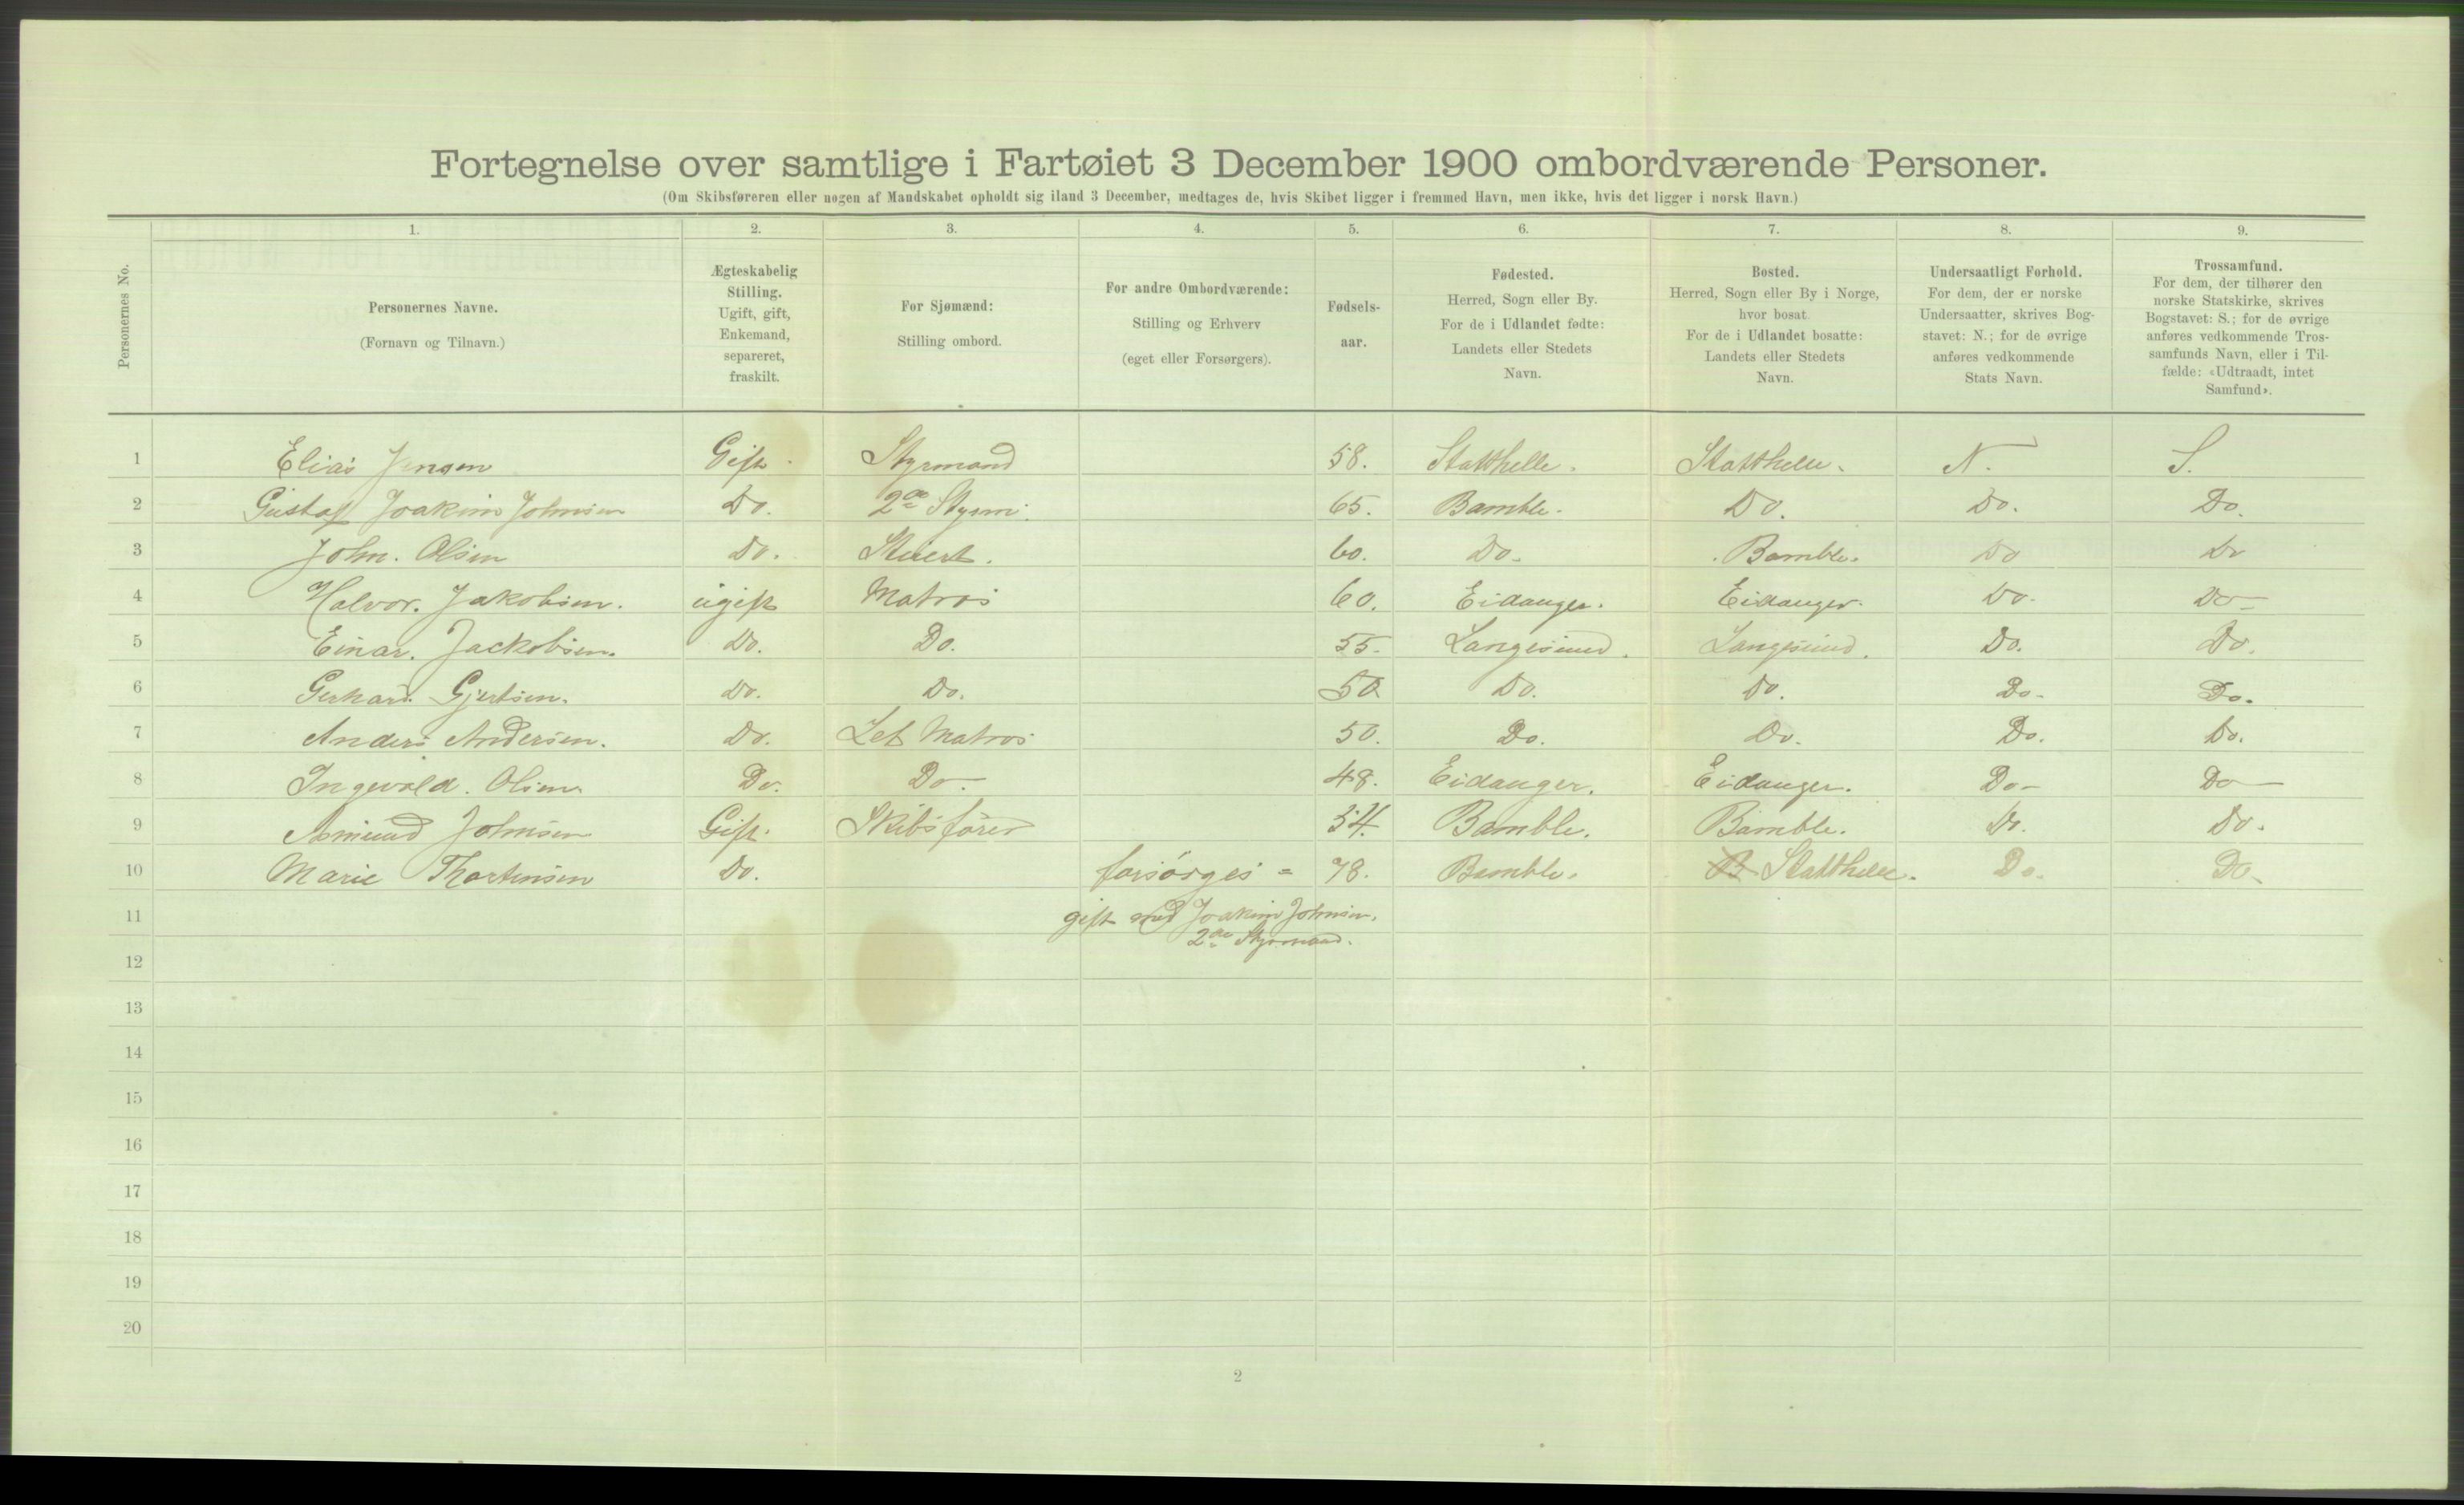 Fortegnelse over samtlige i Fartøiet 3 December 1900 ombordværende Personer.
(Om Skibsføreren eller nogen af Mandskabet opholdt sig iland 3 December, medtages de, hvis Skibet ligger i fremmed Havn, men ikke, hvis det ligger i norsk Havn.)
1. 2. 3. 4. 5. 6. 7. 8. 9.
Personernes No.
Personernes Navne.
(Fornavn og Tilnavn.)
Ægteskabelig
Stilling.
Ugift, gift,
Enkemand,
separeret,
fraskilt.
For Sjømænd:
Stilling ombord.
For andre Ombordværende:
Stilling og Erhverv
(eget eller Forsørgers).
Fødsels-
aar.
Fødested.
Herred, Sogn eller By.
For de i Udlandet fødte:
Landets eller Stedets
Navn.
Bosted.
Herred, Sogn eller By i Norge,
hvor bosat.
For de i Udlandet bosatte:
Landets eller Stedets
Navn.
Undersaatligt Forhold.
For dem, der er norske
Undersaatter, skrives Bog-
stavet: N.; for de øvrige
anføres vedkommende
Stats Navn.
Trossamfund.
For dem, der tilhører den
norske Statskirke, skrives
Bogstavet: S.; for de øvrige
anføres vedkommende Tros-
samfunds Navn, eller i Til-
fælde: «Udtraadt, intet
Samfund».
1 Elias Jenson Gift. Styrmand 58. Statthelle. Statthelle. N. S.
2 Gustaf Joakim Johnsen Do. 2de Styrm. 65. Bamble. Do. Do. Do.
3 John. Olsen Do. Stuert. 60. Do. Bamble. Do Do
4 Halvor. Jakobsen. ugift Matros 60. Eidanger. Eidanger. Do. Do
5 Einar. Jackobsen. Do. Do. 55. Langesund. Langesund. Do. Do.
6 Gerhard. Gjertsen. Do. Do. 50 Do. Do. Do. Do.
7 Anders Andersen. Do. Let Matros 50. Do. Do. Do. Do.
8 Ingevald. Olsen. Do. Do. 48. Eidanger. Eidanger. Do. Do
9 Asmund Johnsen Gift. Skibsfører 54. Bamble. Bamble. Do. Do.
10 Marie Thortensen Do. forsörges = 78. Bamble. B Statthelle. Do. Do.
11 gift med Joakim Johnsen.
2de Styrmand.
12
13
14
15
16
17
18
19
20
2